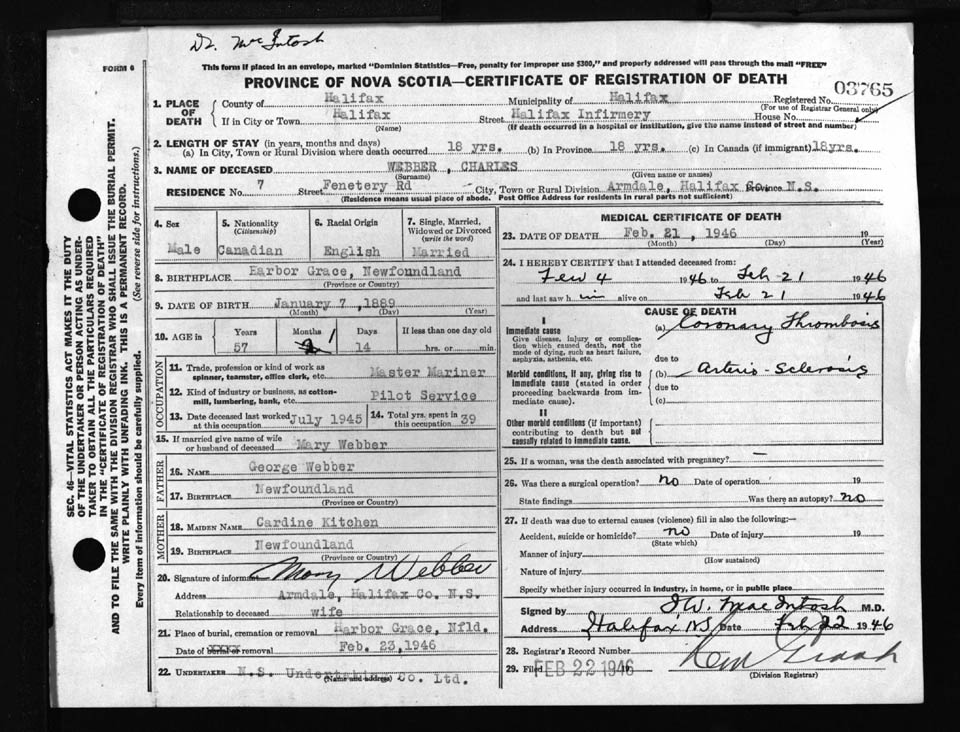 Dr. McIntosh
FORM 6
This form if placed in an envelope, marked "Dominion Statistics—Free, penalty for improper use $300," and properly addressed will pass through the mail "FREE"
PROVINCE OF NOVA SCOTIA—CERTIFICATE OF REGISTRATION OF DEATH
03765
1. PLACE OF DEATH County of Halifax Municipality of Halifax Registered No. (For use of Registrar General only)
If in City or Town Halifax (Name) Street Halifax Infirmery House No.
(If death occurred in a hospital or institution, give the name instead of street and number)
2. LENGTH OF STAY (in years, months and days)
(a) In City, Town or Rural Division where death occurred 18 yrs. (b) In Province 18 yrs. (c) In Canada (if immigrant) 18yrs.
3. NAME OF DECEASED WEBBER , CHARLES
(Surname) (Given name or names)
RESIDENCE No. 7 Street Fenetery Rd City, Town or Rural Division Armdale, Halifax Co. Province N.S.
(Residence means usual place of abode. Post Office Address for residents in rural parts not sufficient)
4. Sex Male
5. Nationality (Citizenship) Canadian
6. Racial Origin English
7. Single, Married, Widowed or Divorced (write the word) Married
8. BIRTHPLACE Harbor Grace, Newfoundland
(Province or Country)
9. DATE OF BIRTH January 7 , 1889
(Month) (Day) (Year)
10. AGE in Years 57 Months 1 Days 14 If less than one day old hrs. or min.
OCCUPATION
11. Trade, profession or kind of work as spinner, teamster, office clerk, etc. Master Mariner
12. Kind of industry or business, as cotton-mill, lumbering, bank, etc. Pilot Service
13. Date deceased last worked at this occupation July 1945 14. Total yrs. spent in this occupation 39
15. If married give name of wife or husband of deceased Mary Webber
FATHER
16. NAME George Webber
17. BIRTHPLACE Newfoundland
(Province or Country)
MOTHER
18. MAIDEN NAME Cardine Kitchen
19. BIRTHPLACE Newfoundland
(Province or Country)
20. Signature of informant Mary Webber
Address Armdale, Halifax Co. N.S.
Relationship to deceased wife
21. Place of burial, cremation or removal Harbor Grace, Nfld.
Date of burial or removal Feb. 23,1946
22. UNDERTAKER N.S. Undertaking Co. Ltd.
(Name and address)
MEDICAL CERTIFICATE OF DEATH
23. DATE OF DEATH Feb. 21 , 1946 19
(Month) (Day) (Year)
24. I HEREBY CERTIFY that I attended deceased from:
Few 4 1946 to Feb 21 1946
and last saw h im alive on Feb 21 1946
CAUSE OF DEATH
I
Immediate cause
Give disease, injury or complication which caused death, not the mode of dying, such as heart failure, asphyxia, asthenia, etc.
(a) Coronary Thrombosis
due to
Morbid conditions, if any, giving rise to immediate cause (stated in order proceeding backwards from immediate cause).
(b) Arterio-Sclerosis
due to
(c)
II
Other morbid conditions (if important) contributing to death but not causally related to immediate cause.
25. If a woman, was the death associated with pregnancy? —
26. Was there a surgical operation? no Date of operation 19
State findings Was there an autopsy? no
27. If death was due to external causes (violence) fill in also the following:—
Accident, suicide or homicide? no Date of injury 19
(State which)
Manner of injury
(How sustained)
Nature of injury
Specify whether injury occurred in industry, in home, or in public place
Signed by MacIntosh M.D.
Address Halifax NS Date Feb 22 1946
28. Registrar's Record Number
29. Filed FEB 22 1946 19
(Division Registrar)
SEC. 46—VITAL STATISTICS ACT MAKES IT THE DUTY
OF THE UNDERTAKER OR PERSON ACTING AS UNDER-
TAKER TO OBTAIN ALL THE PARTICULARS REQUIRED
IN THE "CERTIFICATE OF REGISTRATION OF DEATH"
AND TO FILE THE SAME WITH THE DIVISION REGISTRAR WHO SHALL ISSUE THE BURIAL PERMIT.
WRITE PLAINLY WITH UNFADING INK. THIS IS A PERMANENT RECORD.
Every item of information should be carefully supplied. (See reverse side for instructions.)